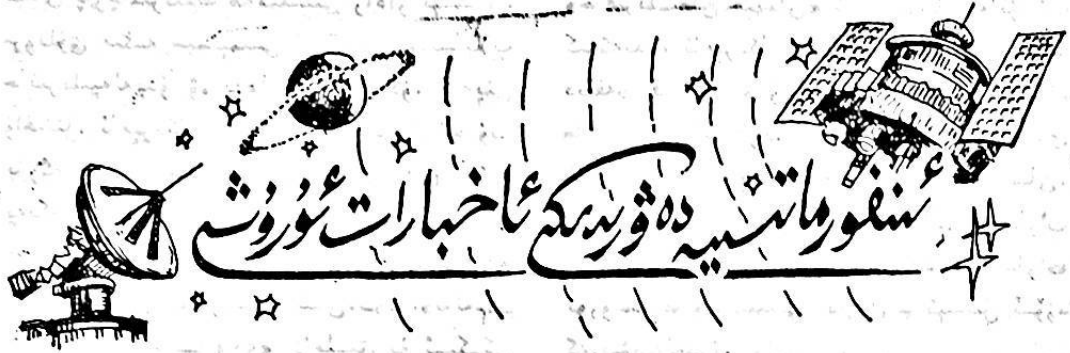 ئىنفورماتسىيە دەۋرىدىكى ئاخبارات ئۇرۇشى